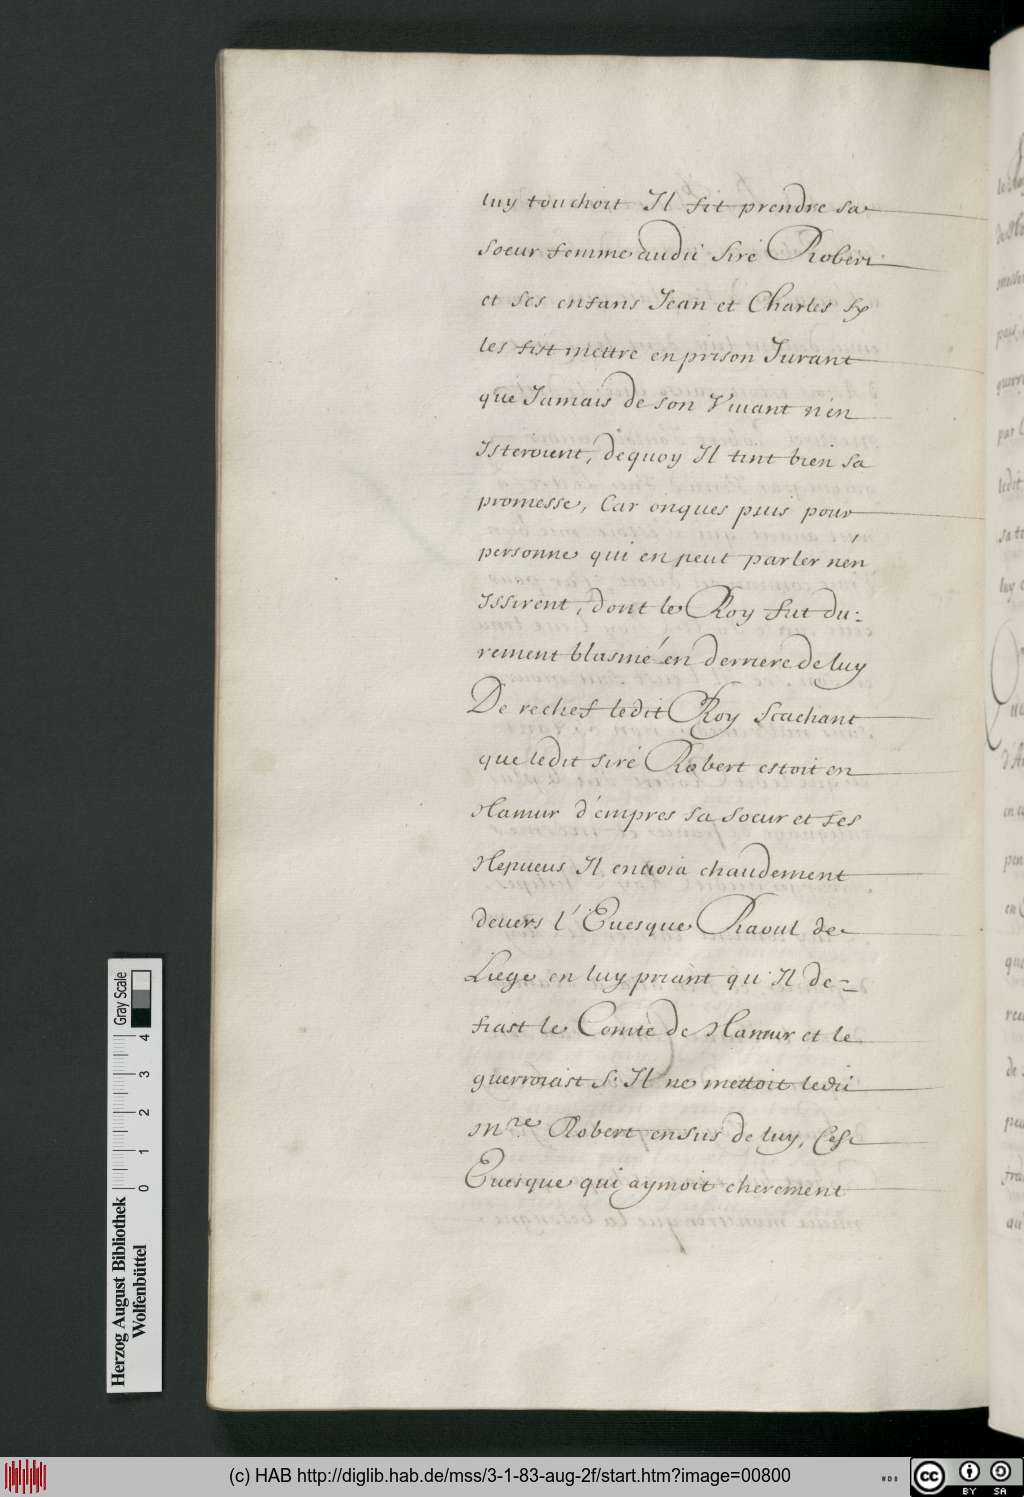 luy touchoit Il fit prendre sa
soeur femme audit sire Robert
et ses enfans Jean et Charles sy
les fist mettre en prison Jurant
que Jamais de son Viuant n'en
Isteroient, de quoy Il tint bien sa
promesse, Car onques puis pour
personne qui en peut parler n'en
Issirent, dont le Roy fut du:
rement blasmé en derriere de luy
De rechef ledit Roy scachant
que ledit sire Robert estoit en
Namur d'empres sa soeur et ses
Nepueus Il enuoia chaudement
deuers l'Euesque Raoul de
Liege en luy priant qu'Il de=
fiast le Comte de Namur et le
guerroiast s'Il ne mettoit ledit
Mre Robert ensus de luy, Cest
Euesque qui aymoit cherement
Gray Scale
4
3
2
1
0
Herzog August Bibliothek
Wolfenbüttel
(c) HAB http://diglib.hab.de/mss/3-1-83-aug-2f/start.htm?image=00800
WDB
CC BY SA